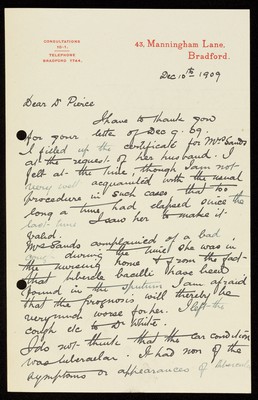 CONSULTATIONS
12-1.
TELEPHONE
BRADFORD 1744.
43, Manningham Lane,
Bradford.
Dec 10th 1909
Dear Dr Pierce
I have to thank you
for your letter of Dec 9. 09.
I filled up the certificate for Mrs Sands
at the request of her husband. I
felt at the time, though I am not
very well acquainted with the usual
procedure in such cases that too
long a time had elapsed since the
last time I saw her to make it
valid.
Mrs Sands complained of a bad
during the time she was in
the nursing home & from the fact
that tubercle bacilli have been
found in the sputum I am afraid
that the prognosis will thereby be
very much worse for her. I left the
cough etc to Dr White.
I do not think that the ear condition
was tubercular. I had non of the
symptoms or appearances of